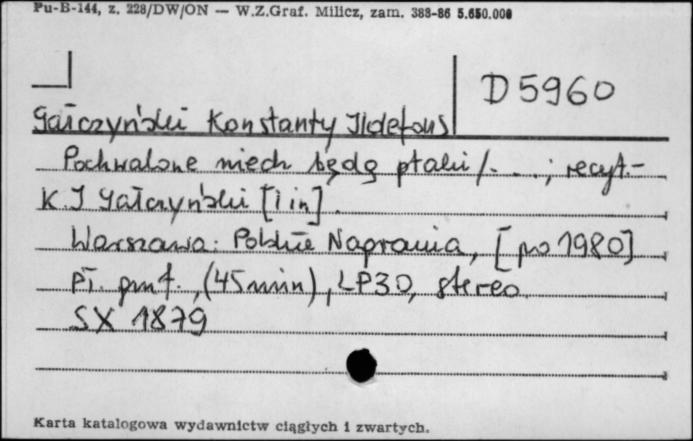 Pu-B-144, z. 228/DW/ON — W.Z.Graf. Milicz, zam. 388-86 5.650.000
D 5960
Gałczyński Konstanty Ildefons
Pochwalone niech będą ptaki /. . . . ; recyt.-
K. I Gałczyński [i in].
Warszawa: Polskie Nagrania, [po 1980]
Pł. gmf., (45 min), LP30, stereo
SX 1879
Karta katalogowa wydawnictw ciągłych i zwartych.